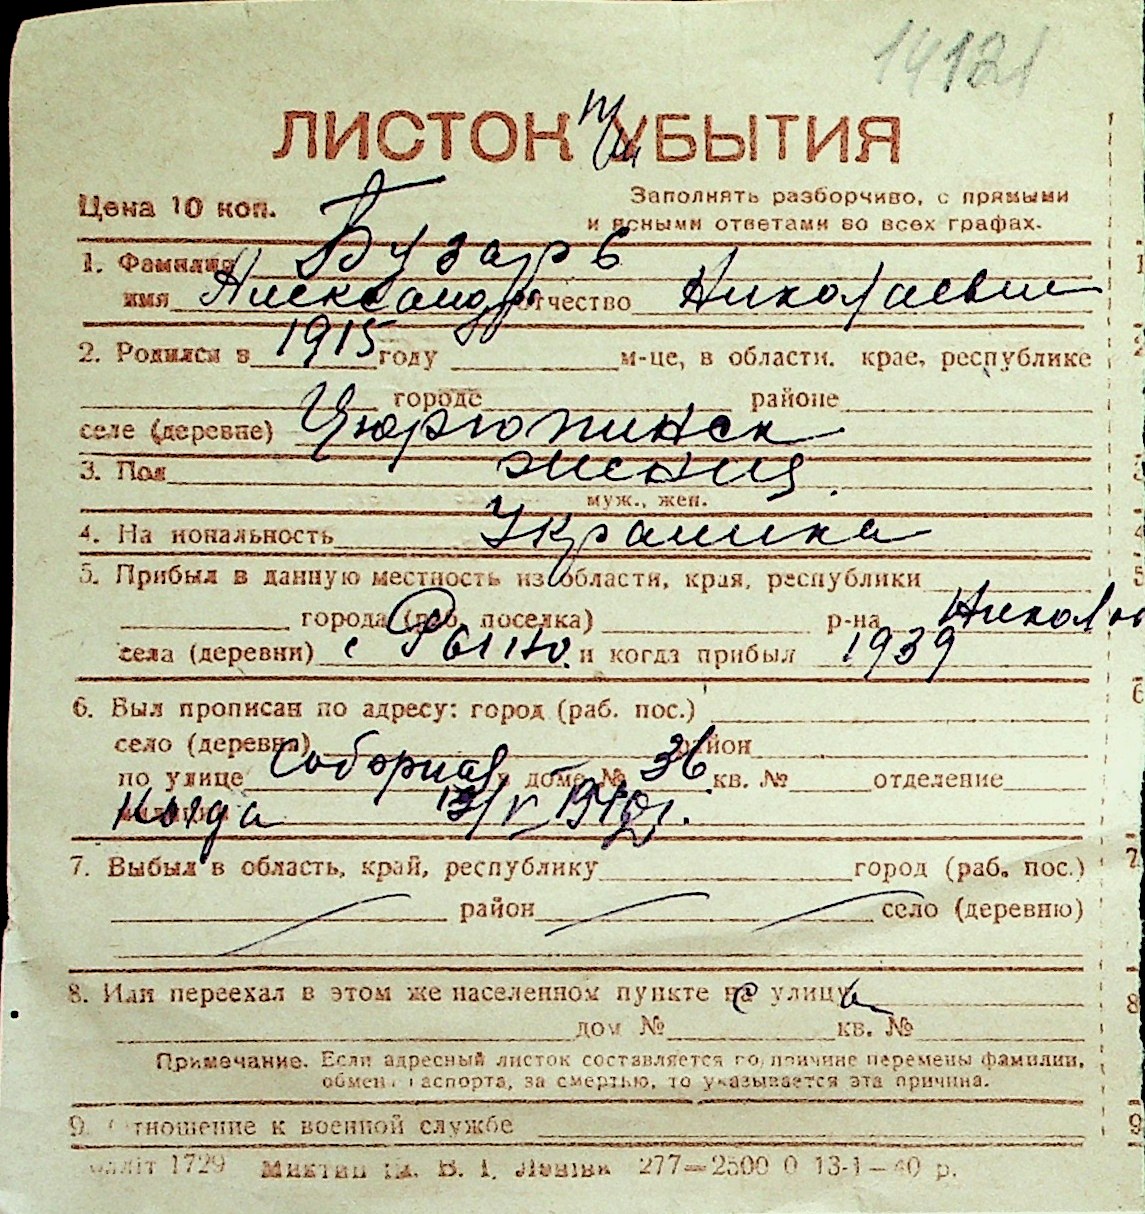 14121
ЛИСТОК УБЫТИЯ
Цена 10 коп.
Заполнять разборчиво, с прямыми
и ясными ответами во всех графах.
1. Фамилия Бузарь
имя Александр отчество Николаевич
2. Родился в 1915 году м-це, в области, крае, республике
городе районе
селе (деревне) Цюрюпинск
3. Пол женщ.
муж., жен.
4. На иональность Украинка
5. Прибыл в данную местность из области, края, республики
города (раб. поселка) р-на Никола
села (деревни) с и когда прибыл 1939
6. Был прописан по адресу: город (раб. пос.)
село (деревня) район
по улице Соборная дом № 36 кв. № отделение
Когда
7. Выбыл в область, край, республику город (раб. пос.)
район село (деревню)
8. Или переехал в этом же населенном пункте на улицу
дом № кв. №
Примечание. Если адресный листок составляется по причине перемены фамилии,
обмен паспорта, за смертью, то указывается эта причина.
9. Отношение к военной службе
1729 В. І. Леніна 277—2500 0 13-1—40 р.
1
2
3
4
5
6
7
8
9